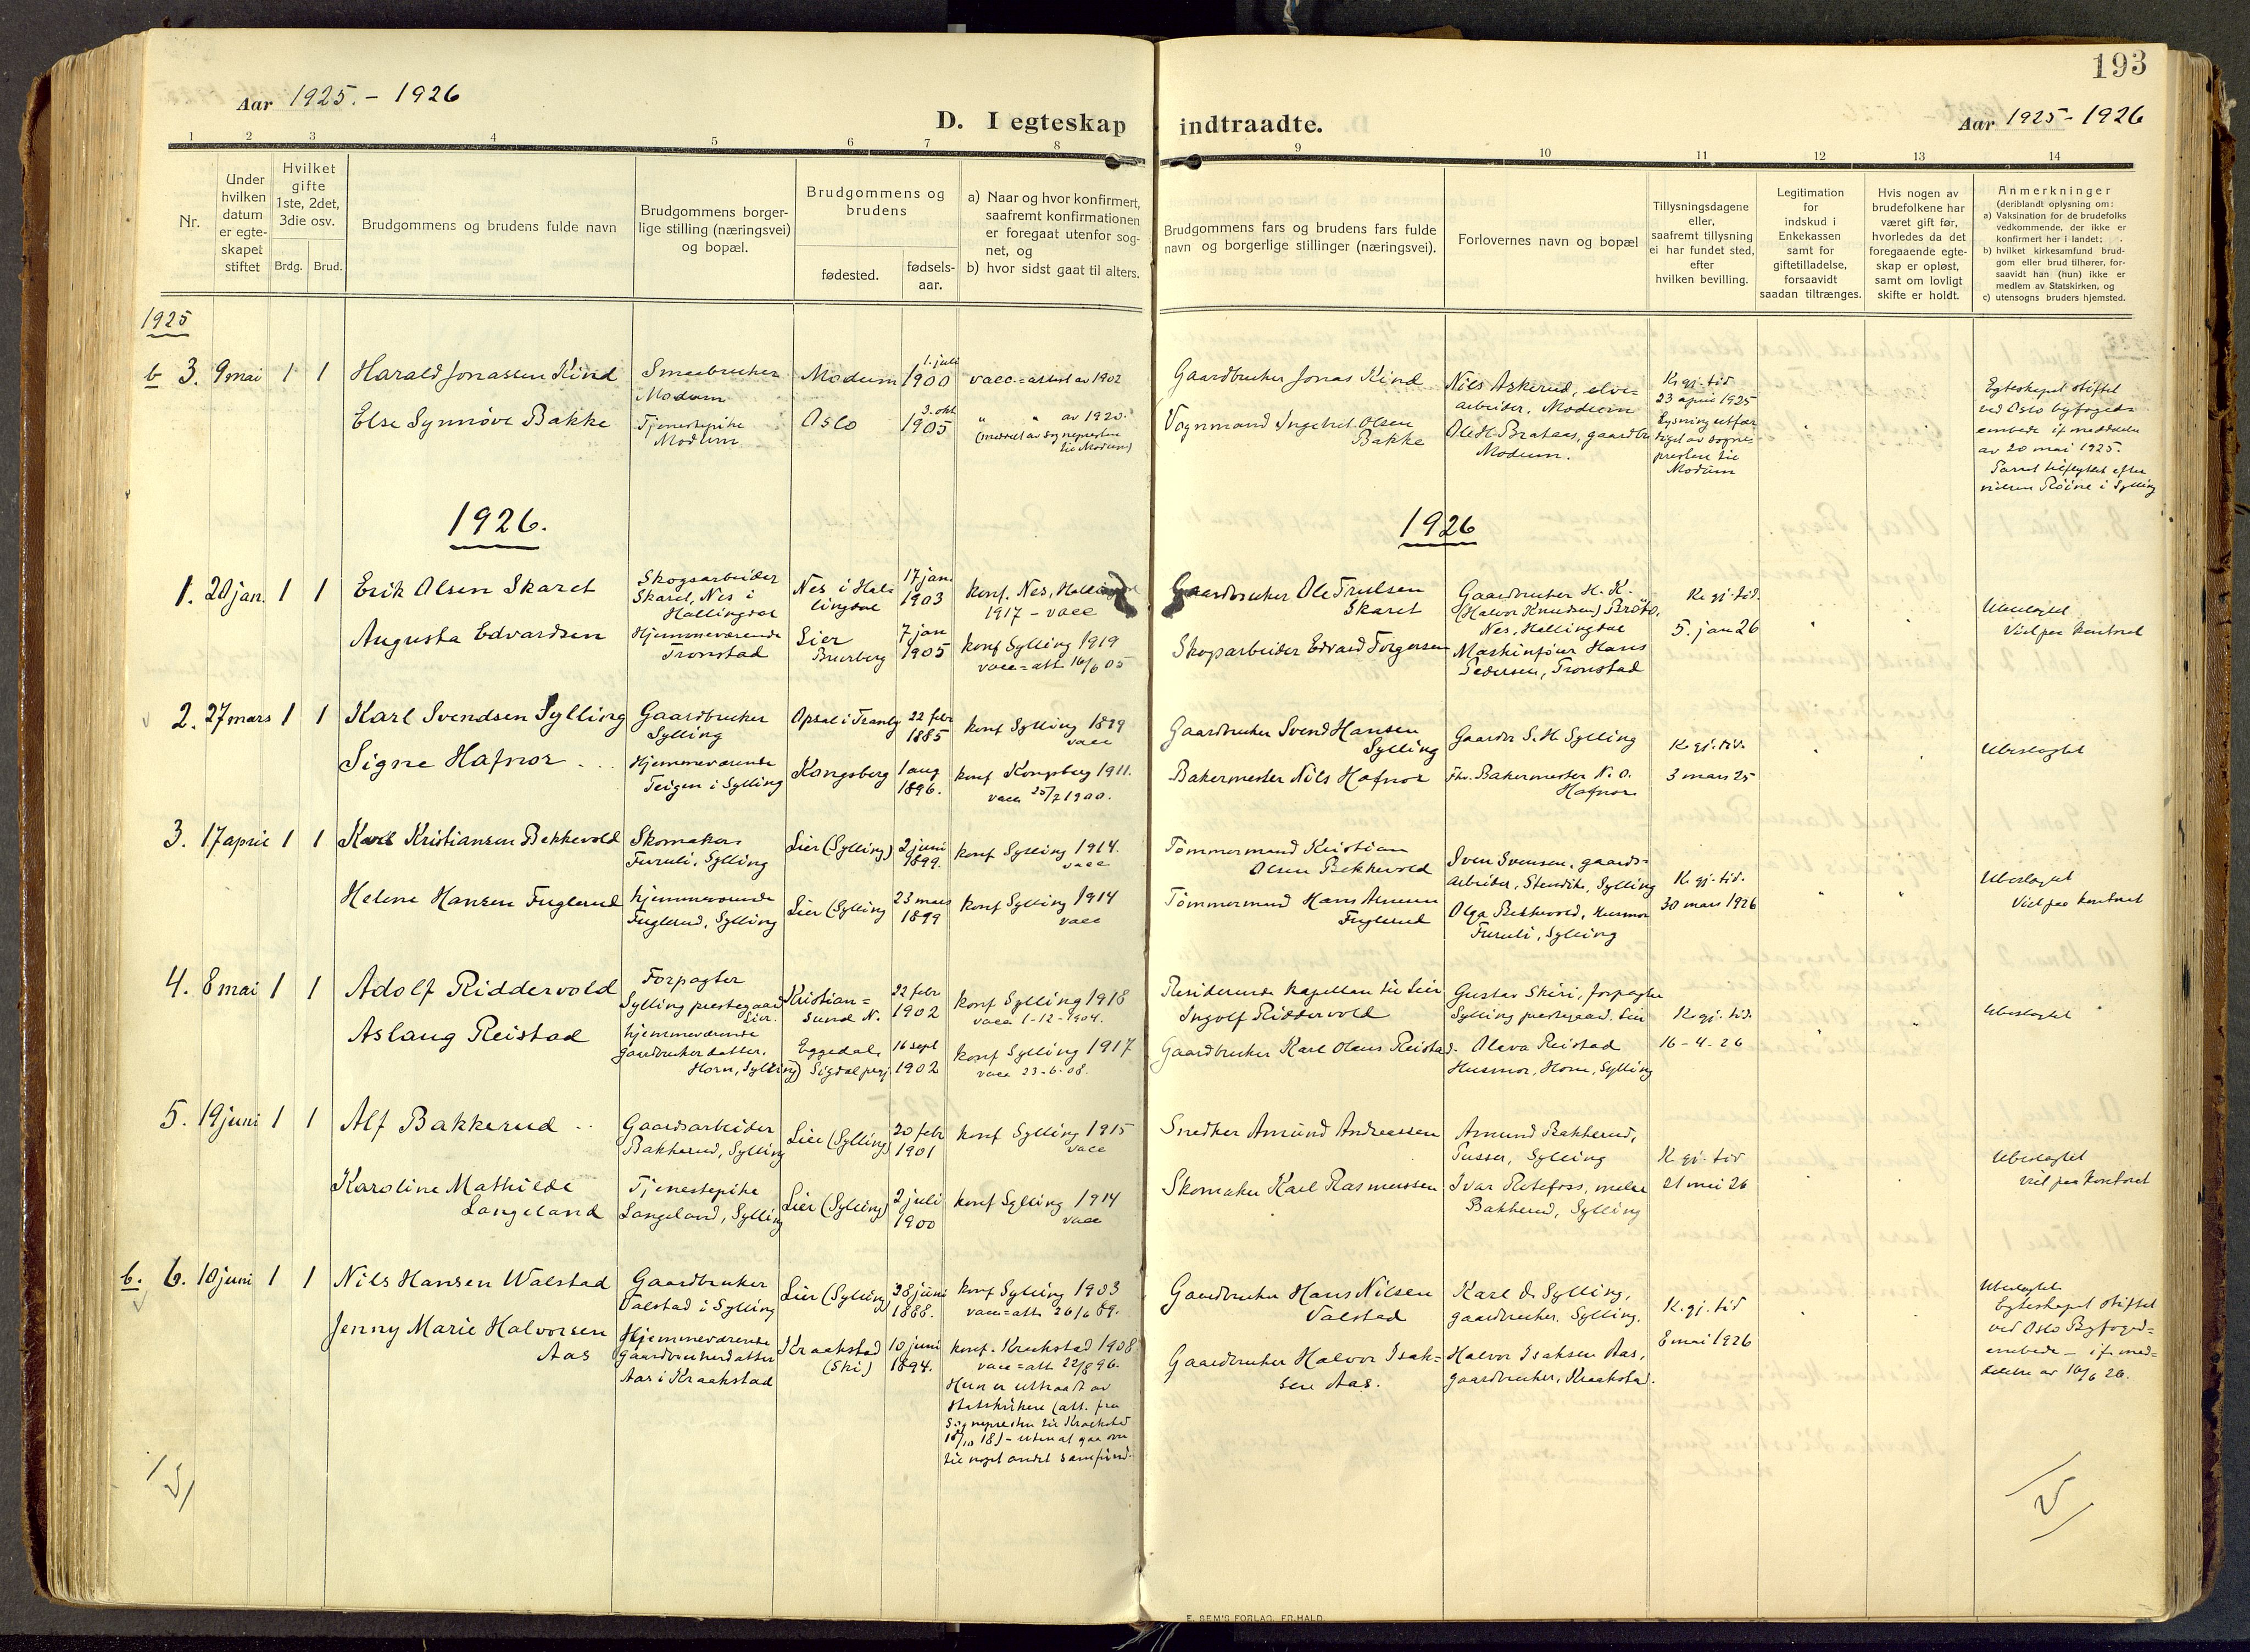 193
Aar 1925. - 1926
D. I egteskap indtraadte.
Aar 1925 - 1926
1 2 3 4 5 6 7 8 9 10 11 12 13 14
Nr.
Under hvilken datum er egte-skapet stiftet
Hvilket gifte 1ste, 2det, 3die osv.
Brdg. Brud.
Brudgommens og brudens fulde navn
Brudgommens borger-lige stilling (næringsvei) og bopæl.
Brudgommens og brudens
fødested.
fødsels-aar.
a) Naar og hvor konfirmert, saafremt konfirmationen er foregaat utenfor sog-net, og
b) hvor sidst gaat til alters.
Brudgommens fars og brudens fars fulde navn og borgerlige stillinger (næringsvei).
Forlovernes navn og bopæl
Tillysningsdagene eller, saafremt tillysning ei har fundet sted, efter hvilken bevilling.
Legitimation for indskud i Enkekassen samt for giftetilladelse, forsaavidt saadan tiltrænges.
Hvis nogen av brudefolkene har været gift før, hvorledes da det foregaaende egte-skap er opløst, samt om lovligt skifte er holdt.
Anmerkninger
(deriblandt oplysning om:
a) Vaksination for de brudefolks vedkommende, der ikke er konfirmert her i landet;
b) hvilket kirkesamfund brud-gom eller brud tilhører, for-saavidt han (hun) ikke er medlem av Statskirken, og
c) utensogns bruders hjemsted.
1925
b 3. 9 mai 1 1 Harald Jonassen Kind
Smedbruker
Modum
Modum
1. juli
1900
vacc. = attest av 1902
Gaardbruker Jonas Kind
Nils Askerud, elve-
arbeider, Modum
K. gj. tid
23 april 1925
Lysning utfær
diget av sogne-
presten til
Modum
Else Synnøve Bakke
Tjenestepike
Modum
Oslo
3. okt
1905
" " av 1920.
(meddelt av sognepresten
til Modum)
Vognmand Ingebret Olsen
Bakke
Ole H. Brataas, gaardbr
Modum.
Egteskapet stiftet
ved Oslo byfogeds
embede if. meddelelse
av 20 mai 1925.
1926.
1926
1. 20 jan. 1 1 Erik Olsen Skaret
Skogsarbeider
Skaret, Nes i
Hallingdal
Nes i Hal-
lingdal
17 jan.
1903
konf. Nes, Hallingdal
1917 - vacc
Gaardbruker Ole Truelsen
Skaret
Gaardbruker H. K.
(Halvor Knudsen) Bröto,
Nes, Hallingdal
K. gj. tid.
5. jan 26
Ubeslegtet
Viet paa kontoret
Augusta Edvardsen
Hjemmeværende
Tronstad
Lier
7 jan
1905
konf Sylling 1919
vacc = att. 16/6 05
Skogsarbeider Edvard Torgersen
Maskinfører Hans
Pedersen, Tronstad
2. 27 mars 1 1 Karl Svendsen Sylling
Gaardbruker
Sylling
Opsal i Tranby
22 febr
1885
konf Sylling 1899
vacc
Gaardbruker Svend Hansen
Sylling
Gaardbr S. H. Sylling
K. gj. tid.
3 mars 25
Ubeslegtet
Signe Hafnor
Hjemmeværende
Teigen i Sylling
Kongsberg
1 aug
1896.
konf Kongsberg 1911.
vacc 25/7 1900.
Bakermester Nils Hafnor
Fhv. Bakermester N. O.
Hafnor
3. 17 april 1 1 Karl Kristiansen Bekkevold
Skomaker
Furuli, Sylling
Lier (Sylling)
2 juni
1899.
konf Sylling 1914.
vacc
Tømmermand Kristian
Olsen Bekkevold
Sven Svensen, gaards-
arbeider, Stendik, Sylling
K. gj. tid.
30 mars 1926
Ubeslegtet
Viet paa kontoret
Helene Hansen Fuglerud
hjemmeværende
Fuglerud, Sylling
Lier (Sylling
23 mars
1899
konf Sylling 1914
vacc
Tømmermand Hans
Fuglerud
Olga Bekkevold, Husmor
Furuli, Sylling
4. 8 mai 1 1 Adolf Riddervold
Forpagter
Sylling prestegaard
Lier.
Kristian=
sund N.
22 febr
1902
konf Sylling 1918
vacc 1-12-1904.
Residerende kapellan til Lier
Ingolf Riddervold
Gustav Skiri, forpagter
Sylling prestegaard. Lier
K. gj. tid.
16-4-26
Ubeslegtet
Aslaug Reistad
hjemmeværende
gaardbrukerdatter,
Horn, Sylling
Eggedal,
Sigdal prgj
16 sept
1902
konf Sylling 1917
vacc 23-6-08.
Gaardbruker Karl Olaus Reistad.
Olava Reistad
Husmor, Horn, Sylling
5. 19 juni 1 1 Alf Bakkerud
Gaardsarbeider
Bakkerud, Sylling
Lier (Sylling)
20 febr
1901
konf Sylling 1915
vacc
Snedker Amund Andreassen
Amund Bakkerud,
Pusser, Sylling
K. gj. tid
21 mai 26
Ubeslegtet
viet paa kontoret
Karoline Mathilde
Langeland
Tjenestepike
Langeland, Sylling
Lier (Sylling)
2 juli
1900
konf Sylling 1914
vacc
Skomaker Karl Rasmussen
Ivar Ritefoss, møller
Bakkerud, Sylling
b. 6. 10 juni 1 1 Nils Hansen Walstad
Gaardbruker
Valstad i Sylling
Lier (Sylling)
28 juni
1888.
konf Sylling 1903
vacc = att. 26/6 89.
Gaardbruker Hans Nilsen
Valstad
Karl S. Sylling,
gaardbruker. Sylling.
K. gj. tid
8 mai 1926
Ubeslegtet
Egteskapet stiftet
ved Oslo Byfoged=
embede - if. med-
delelse av 10/6 26.
Jenny Marie Halvorsen
Aas
Hjemmeværende
gaardbrukerdatter
Aas i Kraakstad
Kraakstad
(Ski)
10 juni
1894.
konf. Kraakstad 1908
vacc = att. 22/8 96.
Hun er uttraadt av
Statskirken (att. fra
Sognepresten til Kraakstad
18/10 18) - uten at gaa over
til noget andet samfund.
Gaardbruker Halvor Isak=
sen Aas.
Halvor Isaksen Aas,
gaardbruker, Kraakstad.
E. SEM'S FORLAG. FR.HALD